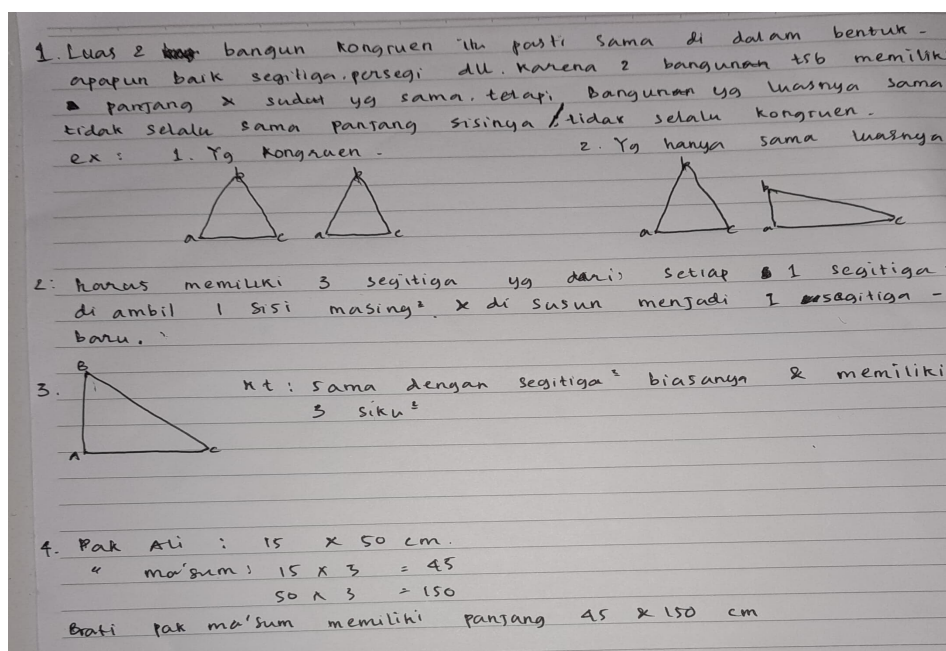 1. Luas 2 bangun kongruen itu pasti sama di dalam bentuk -
apapun baik segitiga, persegi dll. karena 2 bangunan tsb memilik
panjang & sudut yg sama. tetapi bangunan yg luasnya sama
tidak selalu sama panjang sisinya / tidak selalu kongruen.
ex : 1. Yg kongruen.
2. Yg hanya sama luasnya
b b b b
a c a c a c a c
2: harus memiliki 3 segitiga yg dari, setiap 1 segitiga
di ambil 1 sisi masing² & di susun menjadi 1 segitiga -
baru.
3. B
A c
kt : sama dengan segitiga² biasanya & memiliki
3 siku²
4. Pak Ali : 15 x 50 cm.
" ma'sum : 15 x 3 = 45
50 x 3 = 150
Brati pak ma'sum memiliki panjang 45 & 150 cm